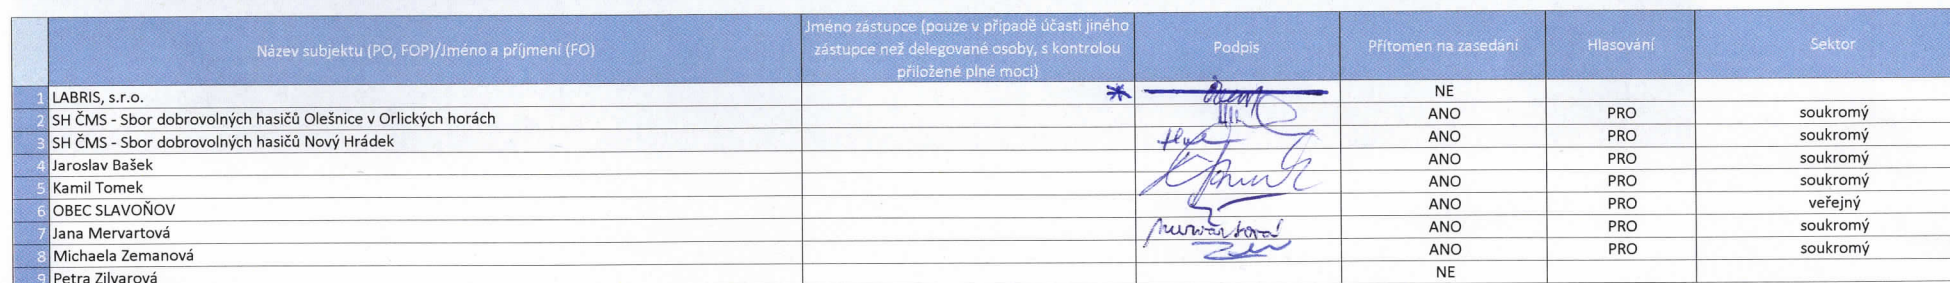 Název subjektu (PO, FOP)/Jméno a příjmení (FO)
Jméno zástupce (pouze v případě účasti jiného
zástupce než delegované osoby, s kontrolou
přiložené plné moci)
Podpis
Přítomen na zasedání
Hlasování
Sektor
1 LABRIS, s.r.o. NE
2 SH ČMS - Sbor dobrovolných hasičů Olešnice v Orlických horách ANO PRO soukromý
3 SH ČMS - Sbor dobrovolných hasičů Nový Hrádek ANO PRO soukromý
4 Jaroslav Bašek ANO PRO soukromý
5 Kamil Tomek ANO PRO soukromý
6 OBEC SLAVOŇOV ANO PRO veřejný
7 Jana Mervartová Mervartová ANO PRO soukromý
8 Michaela Zemanová ANO PRO soukromý
9 Petra Zilvarová NE